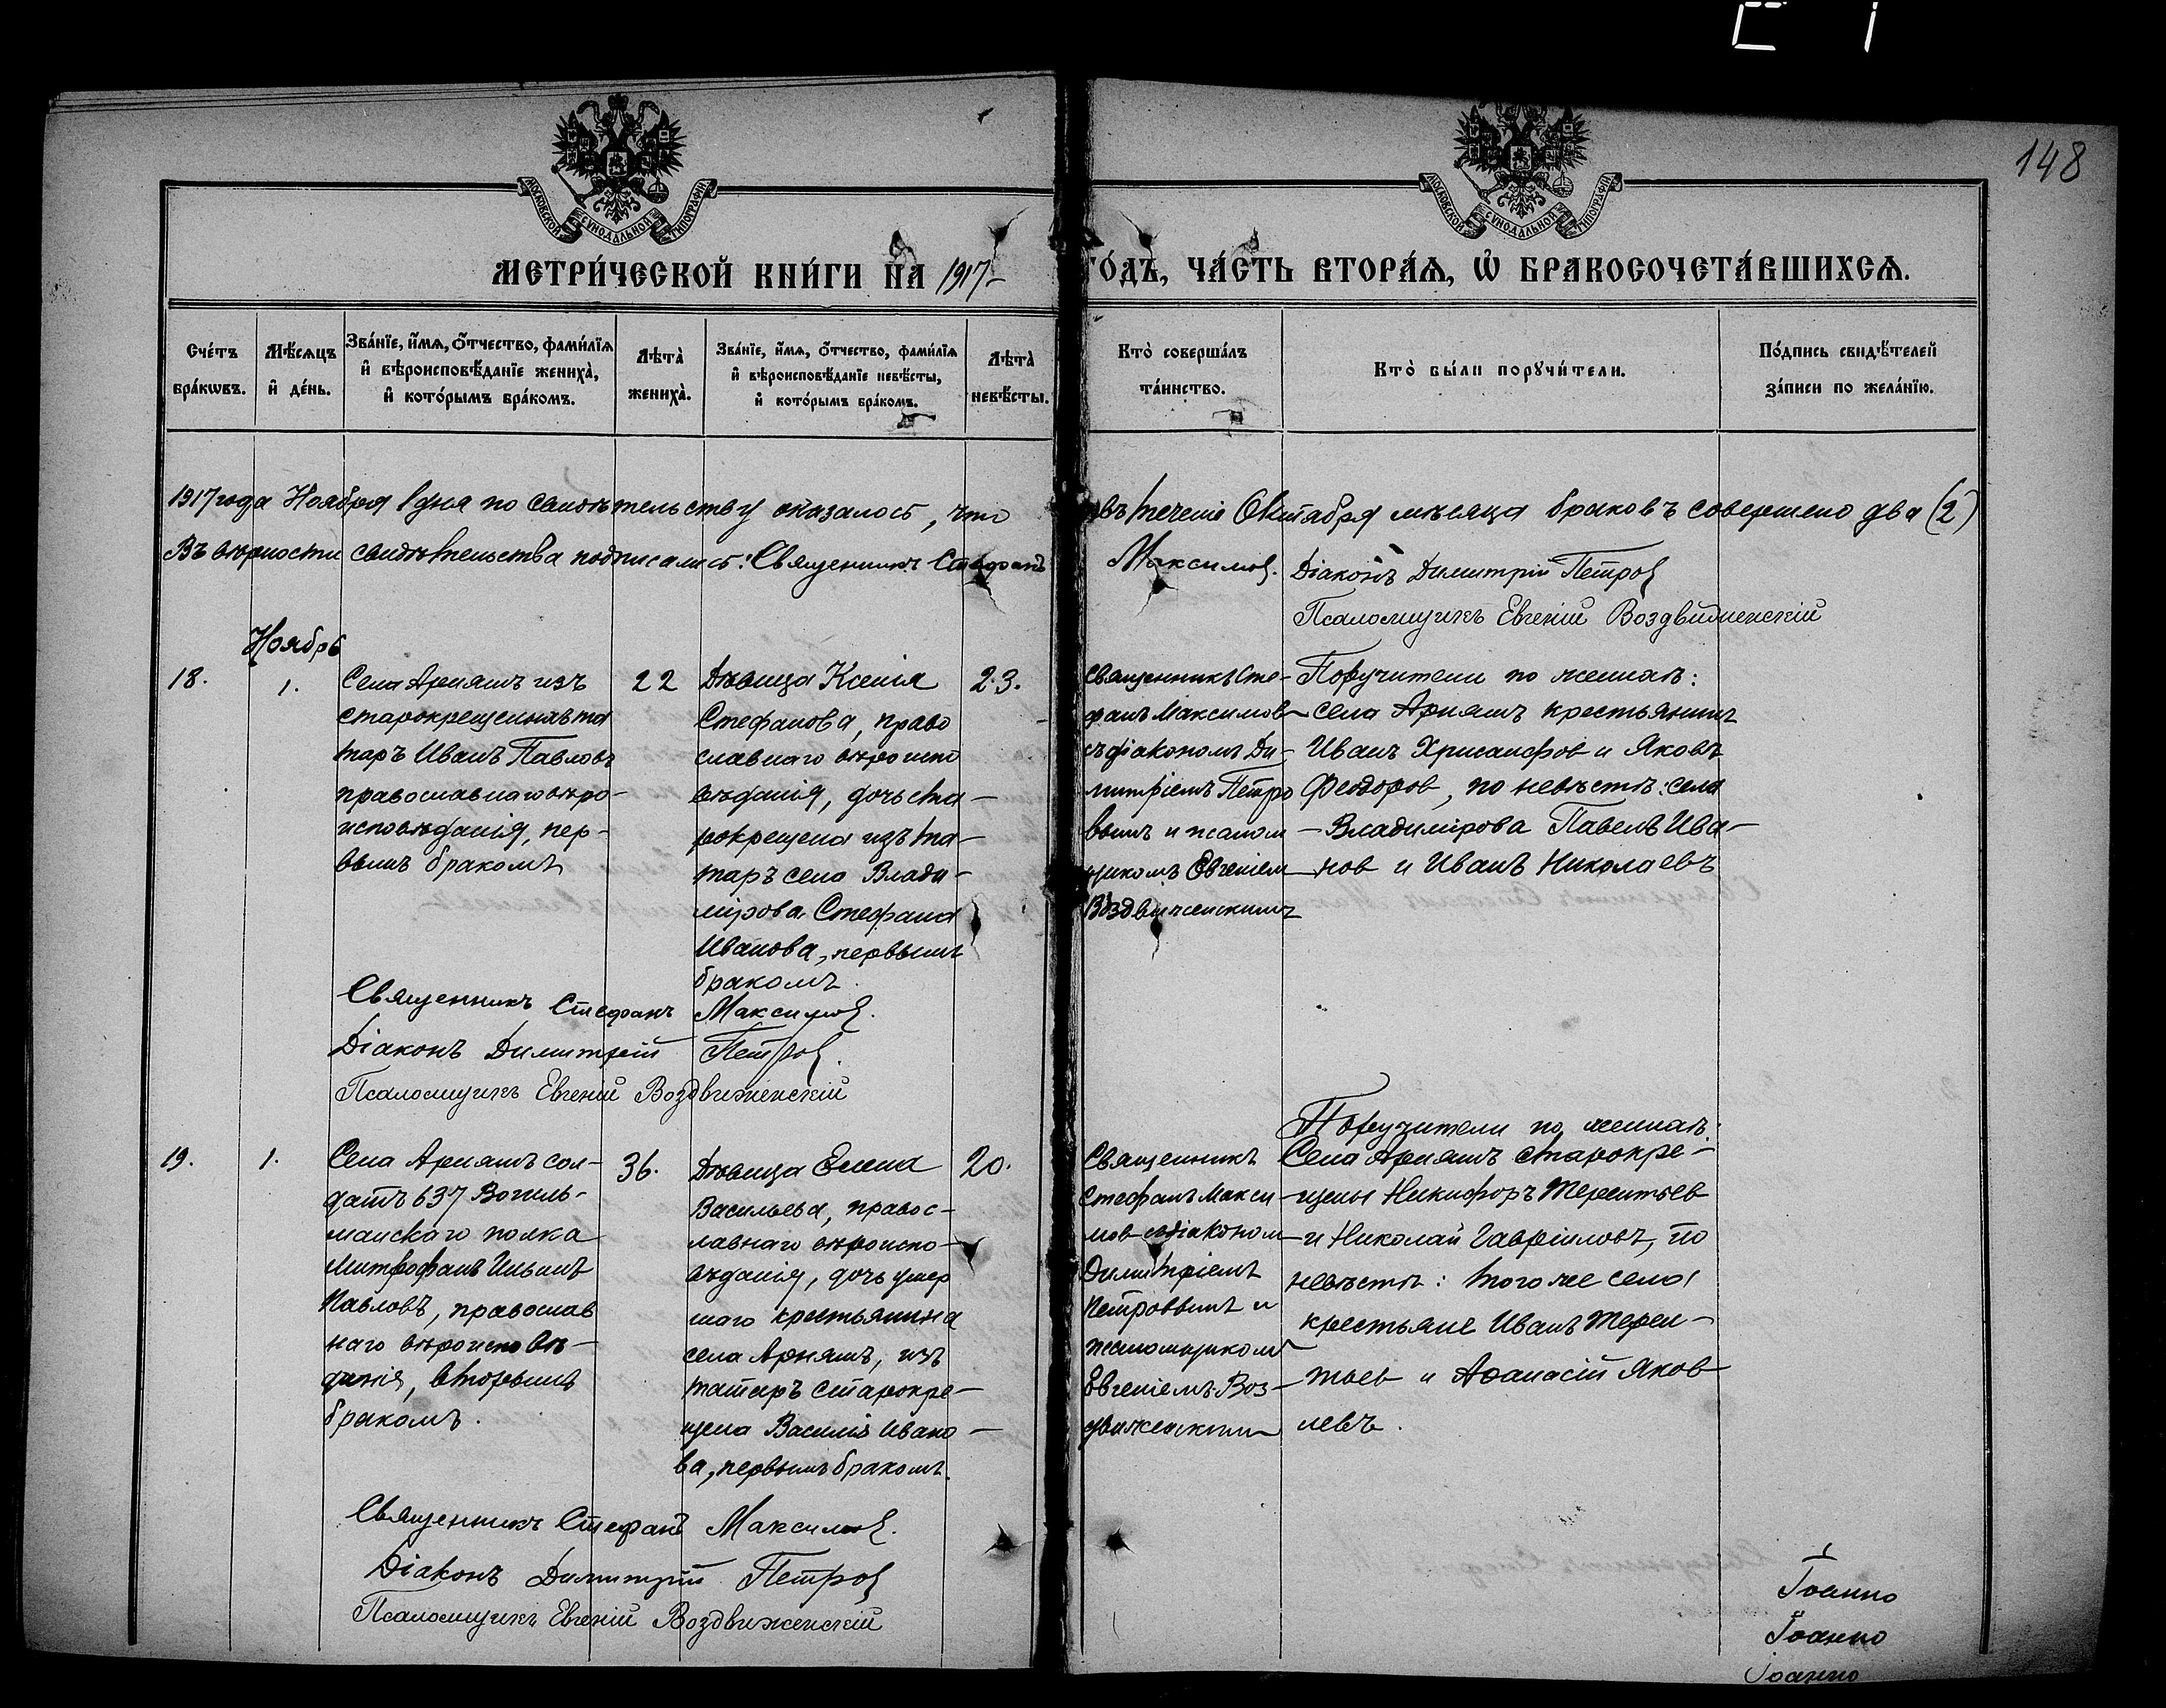 148
МОСКОВСКОЙ СѴНОДАЛЬНОЙ ТИПОГРАФІИ
МОСКОВСКОЙ СѴНОДАЛЬНОЙ ТИПОГРАФІИ
МЕТРИ́ЧЕСКОЙ КНИ́ГИ НА 1917
ГО́ДЪ, ЧА́СТЬ ВТОРА́Ѧ, Ѽ БРАКОСОЧЕТА́ВШИХСѦ.
Сче́тъ бра́кѡвъ.
Мѣ́сѧцъ и҆ де́нь.
Зва́нїе, и҆́мѧ, ѻ҆́тчество, фами́лїѧ и҆ вѣроисповѣ́данїе жениха̀, и҆ кото́рымъ бра́комъ.
Лѣта̀ жениха̀.
Зва́нїе, и҆́мѧ, ѻ҆́тчество, фами́лїѧ и҆ вѣроисповѣ́данїе невѣ́сты, и҆ кото́рымъ бра́комъ.
Лѣта̀ невѣ́сты.
Кто̀ соверша́лъ та́инство.
Кто̀ бы́ли порꙋчи́тели.
По́дпись свидѣ́телей за́писи по жела́нїю.
1917 года Ноября 1 дня по свидѣтельству оказалось, что въ теченіе Октября мѣсяца браковъ совершено два (2)
Въ вѣрности свидѣтельства подписались: Священникъ Стефанъ Максимов.
Діаконъ Димитрій Петров
Псаломщикъ Евгеній Воздвиженскій
Ноябрь
18.
1.
Села Арняшъ изъ
старокрещеныхъ та
таръ Иванъ Павловъ
православнаго вѣро-
исповѣданія, пер-
вымъ бракомъ
22
Дѣвица Ксенія
Стефанова, право
славнаго вѣроиспо
вѣданія, дочь ста-
рокрещена изъ та-
таръ села Влади-
мірова Стефана
Иванова, первымъ
бракомъ.
23.
Священникъ Сте-
фанъ Максимов
съ діакономъ Ди-
митріемъ Петро
вымъ и псалом
щикомъ Евгеніем
Воздвиженскимъ
Поручители по женихѣ:
села Арняшъ крестьянинъ
Иванъ Хрисанфов и Яковъ
Феодоров, по невѣстѣ: села
Владимірова Павелъ Ива-
нов и Иванъ Николаевъ
Священникъ Стефанъ Максимов.
Діаконъ Димитрій Петров.
Псаломщикъ Евгеній Воздвиженскій
19.
1.
Села Арняшъ сол-
датъ 637
полка
Митрофанъ Ильинъ
Павловъ, православ
наго вѣроисповѣ-
данія, вторымъ
бракомъ.
36.
Дѣвица Елена
Васильева, правос-
лавнаго вѣроиспо-
вѣданія, дочь умер
шаго крестьянина
села Арняшъ, изъ
татаръ старокре-
щена Василія Ивано-
ва, первымъ бракомъ.
20.
Священникъ
Стефанъ Макси-
мов съ діаконом
Димитріемъ
Петровымъ и
псаломщиком
Евгеніемъ Воз-
движенским
Поручители по женихѣ:
Села Арняшъ старокре-
щены Никифоръ Терентьев
и Николай Гавриловъ, по
невѣстѣ: того же села
крестьяне Иванъ Терен-
тьев и Афанасій Яков-
левъ.
Священникъ Стефанъ Максимов.
Діаконъ Димитрій Петров
Псаломщикъ Евгеній Воздвиженскій
Іоанно
Іоанно
Іоанно